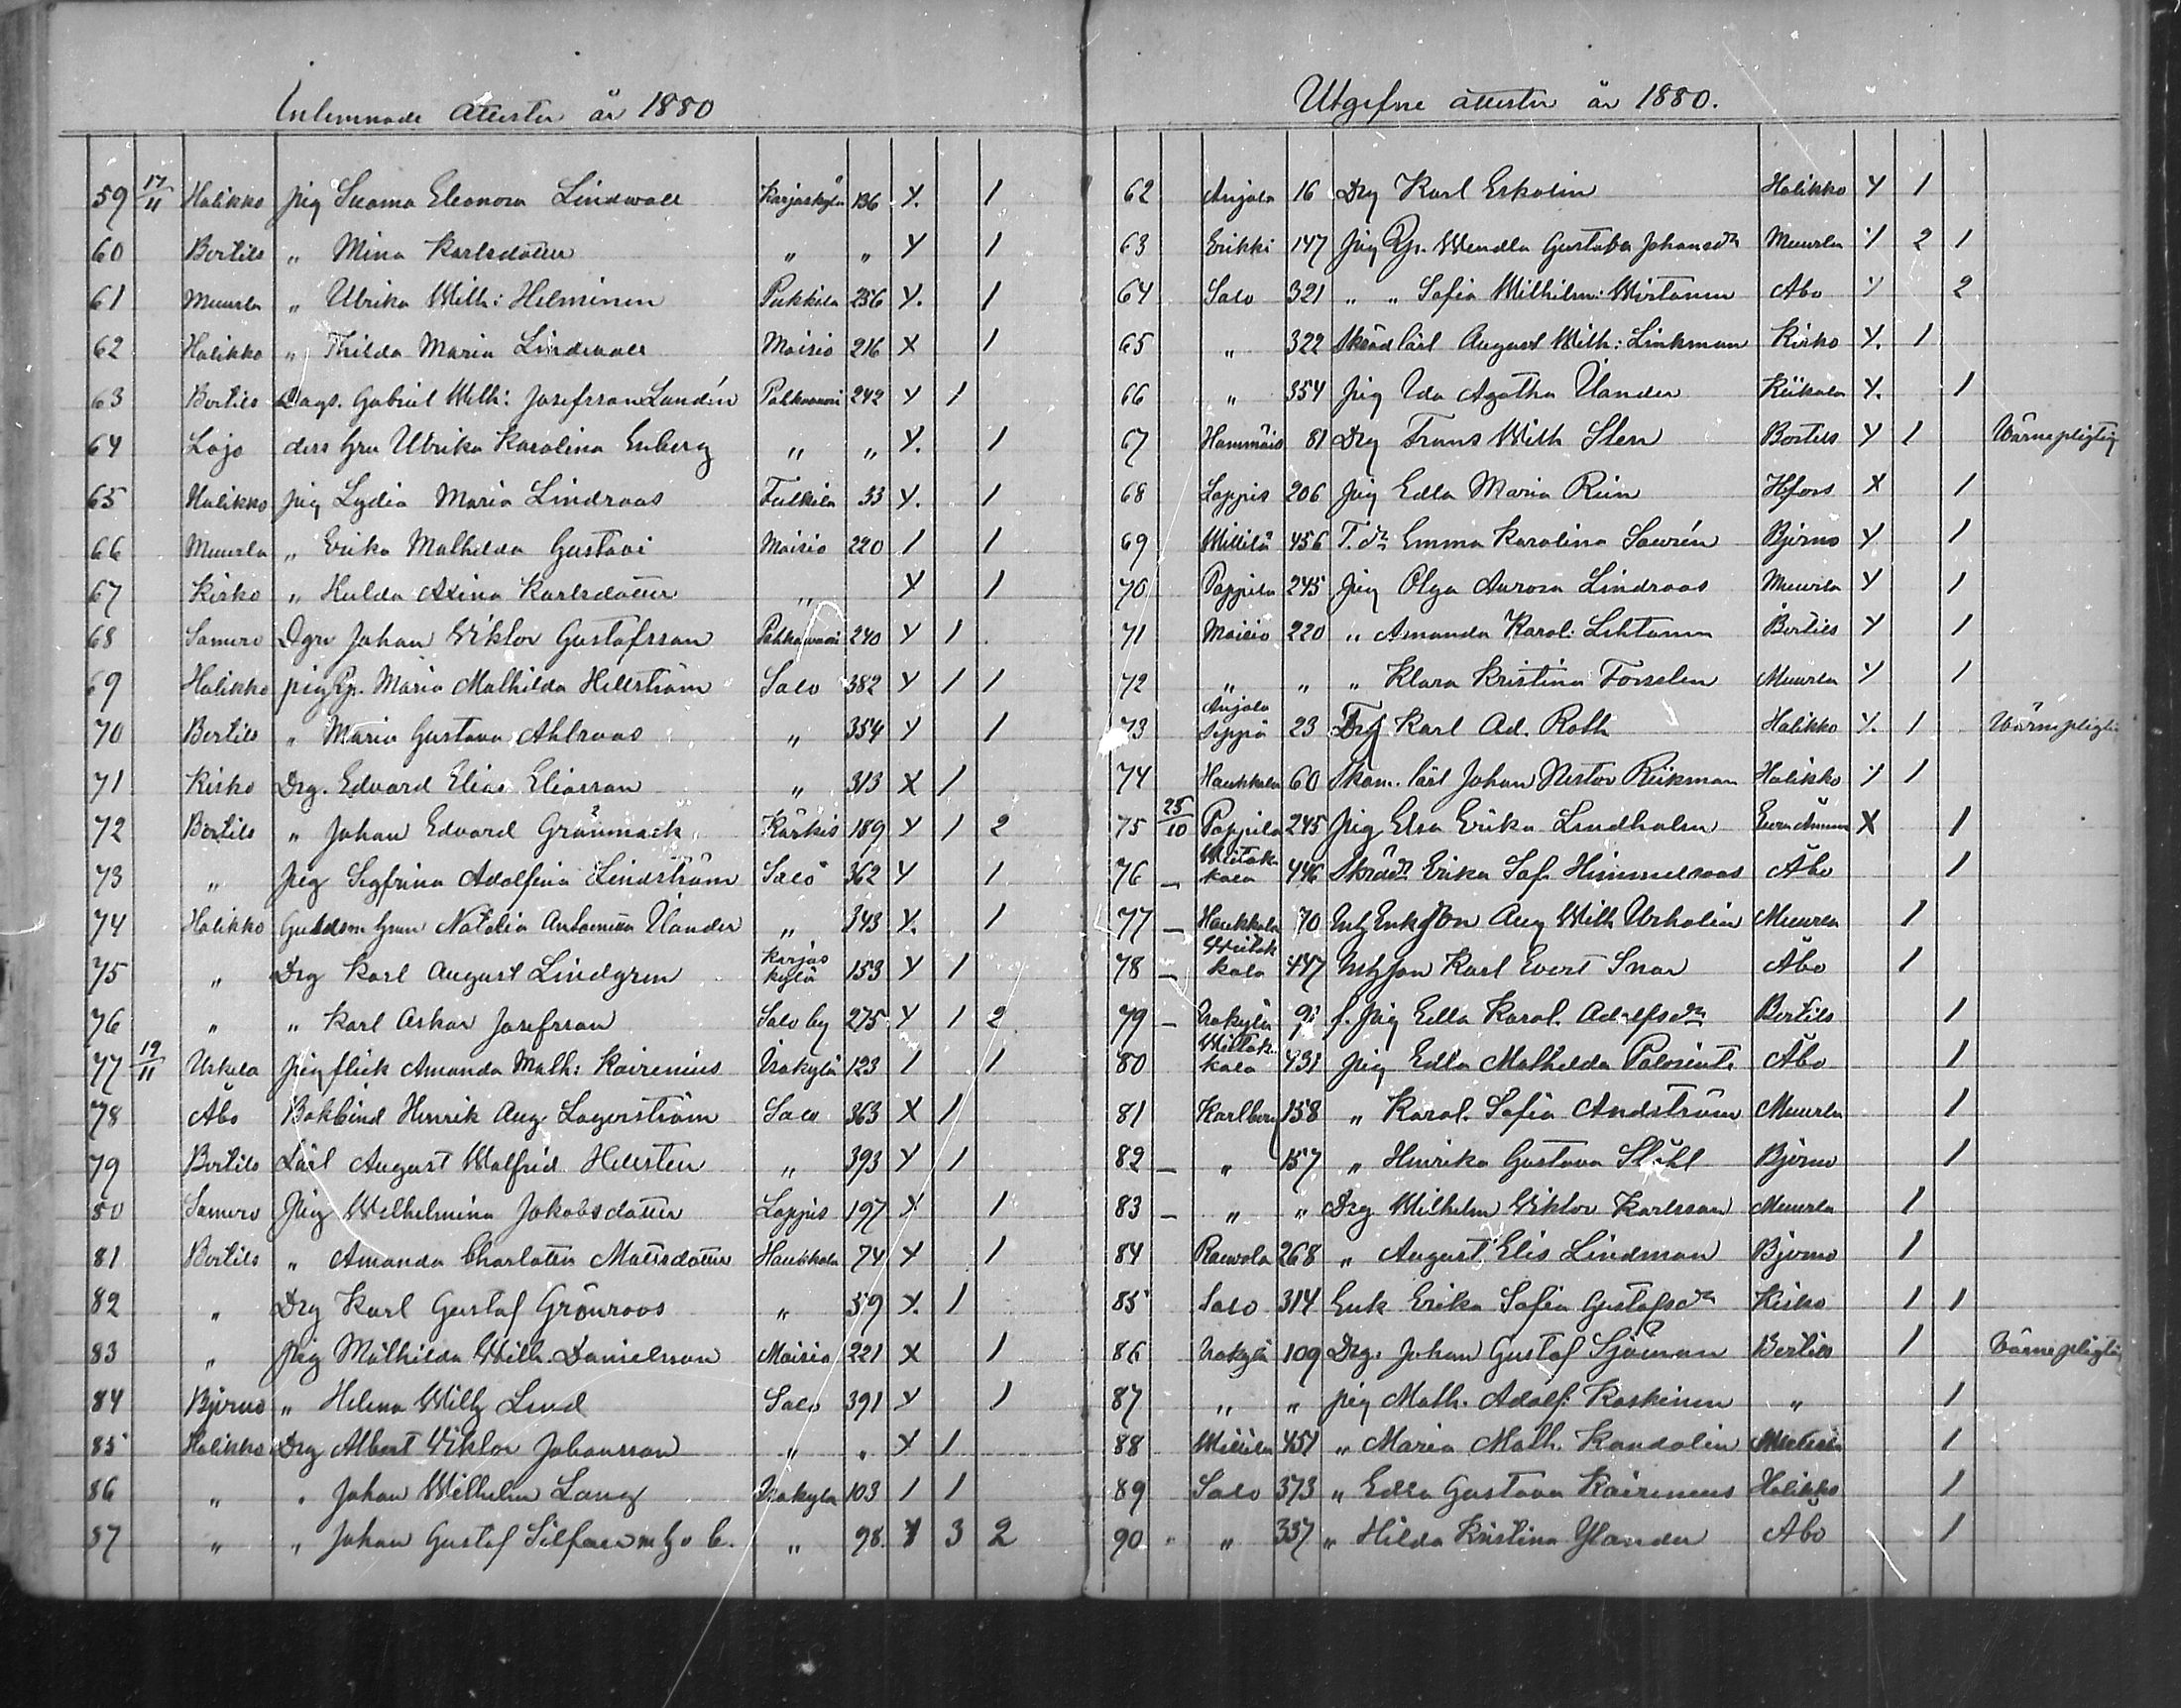 Inlemnade Attester år 1880
59 17/11 Halikko pig Suoma Eleonora Lindwall Karjaskylä 136 Y. 1
60 Bertils „ Mina Karlsdotter „ „ Y 1
61 Muurla „ Ulrika Wilh: Helminen Pukkila 256 Y. 1
62 Halikko „ Thilda Maria Lindwall Moisio 216 X 1
63 Bertils Dags. Gabriel Wilh: Josefsson Lundén Pahkavuori 242 Y 1
64 Lojo dess hru Ulrika Karolina Enberg „ „ Y. 1
65 Halikko pig Lydia Maria Lindroos Tulkila 53 Y. 1
66 Muurla „ Erika Mathilda Gustavi Moisio 220 1 1
67 Kisko „ Hulda Axina Karlsdotter „ Y 1
68 Somero Dgn Johan Viktor Gustafsson Pahkavuori 240 Y 1
69 Halikko pig Rp. Maria Mathilda Hellström Salo 382 Y 1 1
70 Bertils „ Maria Gustava Ahlroos „ 354 Y 1
71 Kisko Drg. Edvard Elias Eliasson „ 313 X 1
72 Bertils „ Johan Edvard Grönmark Kärkis 189 Y 1 2
73 „ pig Sigfrina Adolfina Lindström Salo 362 Y 1
74 Halikko Guldsm hrun Natalia Ulander „ 343 Y. 1
75 „ Drg Karl August Lindgren Karjas kylä 153 Y 1
76 „ „ Karl Oskar Josefsson Salo by 275 Y 1 2
77 19/11 Uskela pigflick Amanda Math: Kairenius Isokylä 123 1 1
78 Åbo Bokbind Henrik Aug Lagerström Salo 363 X 1
79 Bertils Lärl August Walfrid Hellsten „ 393 Y 1
80 Somero Pig Wilhelmina Jakobsdotter Lappis 197 X 1
81 Bertils „ Amanda Charlotta Mattsdotter Haukkala 74 Y 1
82 „ Drg Karl Gustaf Grönroos „ 59 Y. 1
83 „ Pig Mathilda Wilh. Danielsson Moisio 221 X 1
84 Bjerno „ Helena Wilh Lind Salo 391 Y 1
85 Halikko Drg Albert Viktor Johansson „ „ Y 1
86 „ „ Johan Wilhelm Lang Isokylä 103 1 1
87 „ „ Johan Gustaf Silfver m h o b. „ 98. Y 3 2
Utgifne attester år 1880.
62 Anjala 16 Drg Karl Eskolin Halikko Y 1
63 Erikki 147 Pig Rp. Wendla Gustava Johansdr Muurla Y 2 1
64 Salo 321 „ „ Sofia Wilhelm: Wirtanen Åbo Y 2
65 „ 322 Skrädlärl August Wilh: Linkman Kisko Y. 1
66 „ 354 Pig Ida Agatha Ulander Kiikala Y. 1
67 Hämmäis 81 Drg Frans Wilh Sten Bertils Y 1 Wärnepligtig
68 Lappis 206 Pig Edla Maria Rein Hfors X 1
69 Millilä 456 T. dr Emma Karolina Sawrén Bjerno Y 1
70 Pappila 245 Pig Olga Aurora Lindroos Muurla Y 1
71 Moisio 220 „ Amanda Karol: Lehtonen Bertils Y 1
72 „ „ „ Klara Kristina Forselen Muurla Y 1
73 Anjala Seppä 23 Drg Karl Ad. Roth Halikko Y. 1 Wärnepligtig
74 Haukkala 60 Skom. lärl Johan Nestor Riikman Halikko Y 1
75 25/10 Pappila 245 Pig Elsa Erika Lindholm X 1
76 – kala 446 Skrddr Erika Sof. Himmelroos Åbo 1
77 – Haukkala 70 Aug Wilh Urholin Muurla 1
78 – kala 447 Karl Evert Snar Åbo 1
79 – Isokylä 9 f. pig Edla Karol. Adolfsdr Bertils 1
80 kala 431 Pig Edla Mathilda Åbo 1
81 Karlberg 158 „ Karol. Sofia Andström Muurla 1
82 – „ 157 „ Henrika Gustava Ståhl Bjerno 1
83 – „ „ Drg Wilhelm Viktor Karlsson Muurla 1
84 268 „ August Elis Lindman Bjerno 1
85 Salo 314 Enk Erika Sofia Gustafsdr Kisko 1 1
86 Isokylä 109 Drg. Johan Gustaf Sjöman Bertils 1 Wärnepligtig
87 „ „ pig Math. Adolf: Koskinen „ 1
88 Millilä 451 „ Maria Math. Kandolin 1
89 Salo 373 „ Edla Gustava Kairenius Halikko 1
90 „ 337 „ Hilda Kristina Ylander Åbo 1